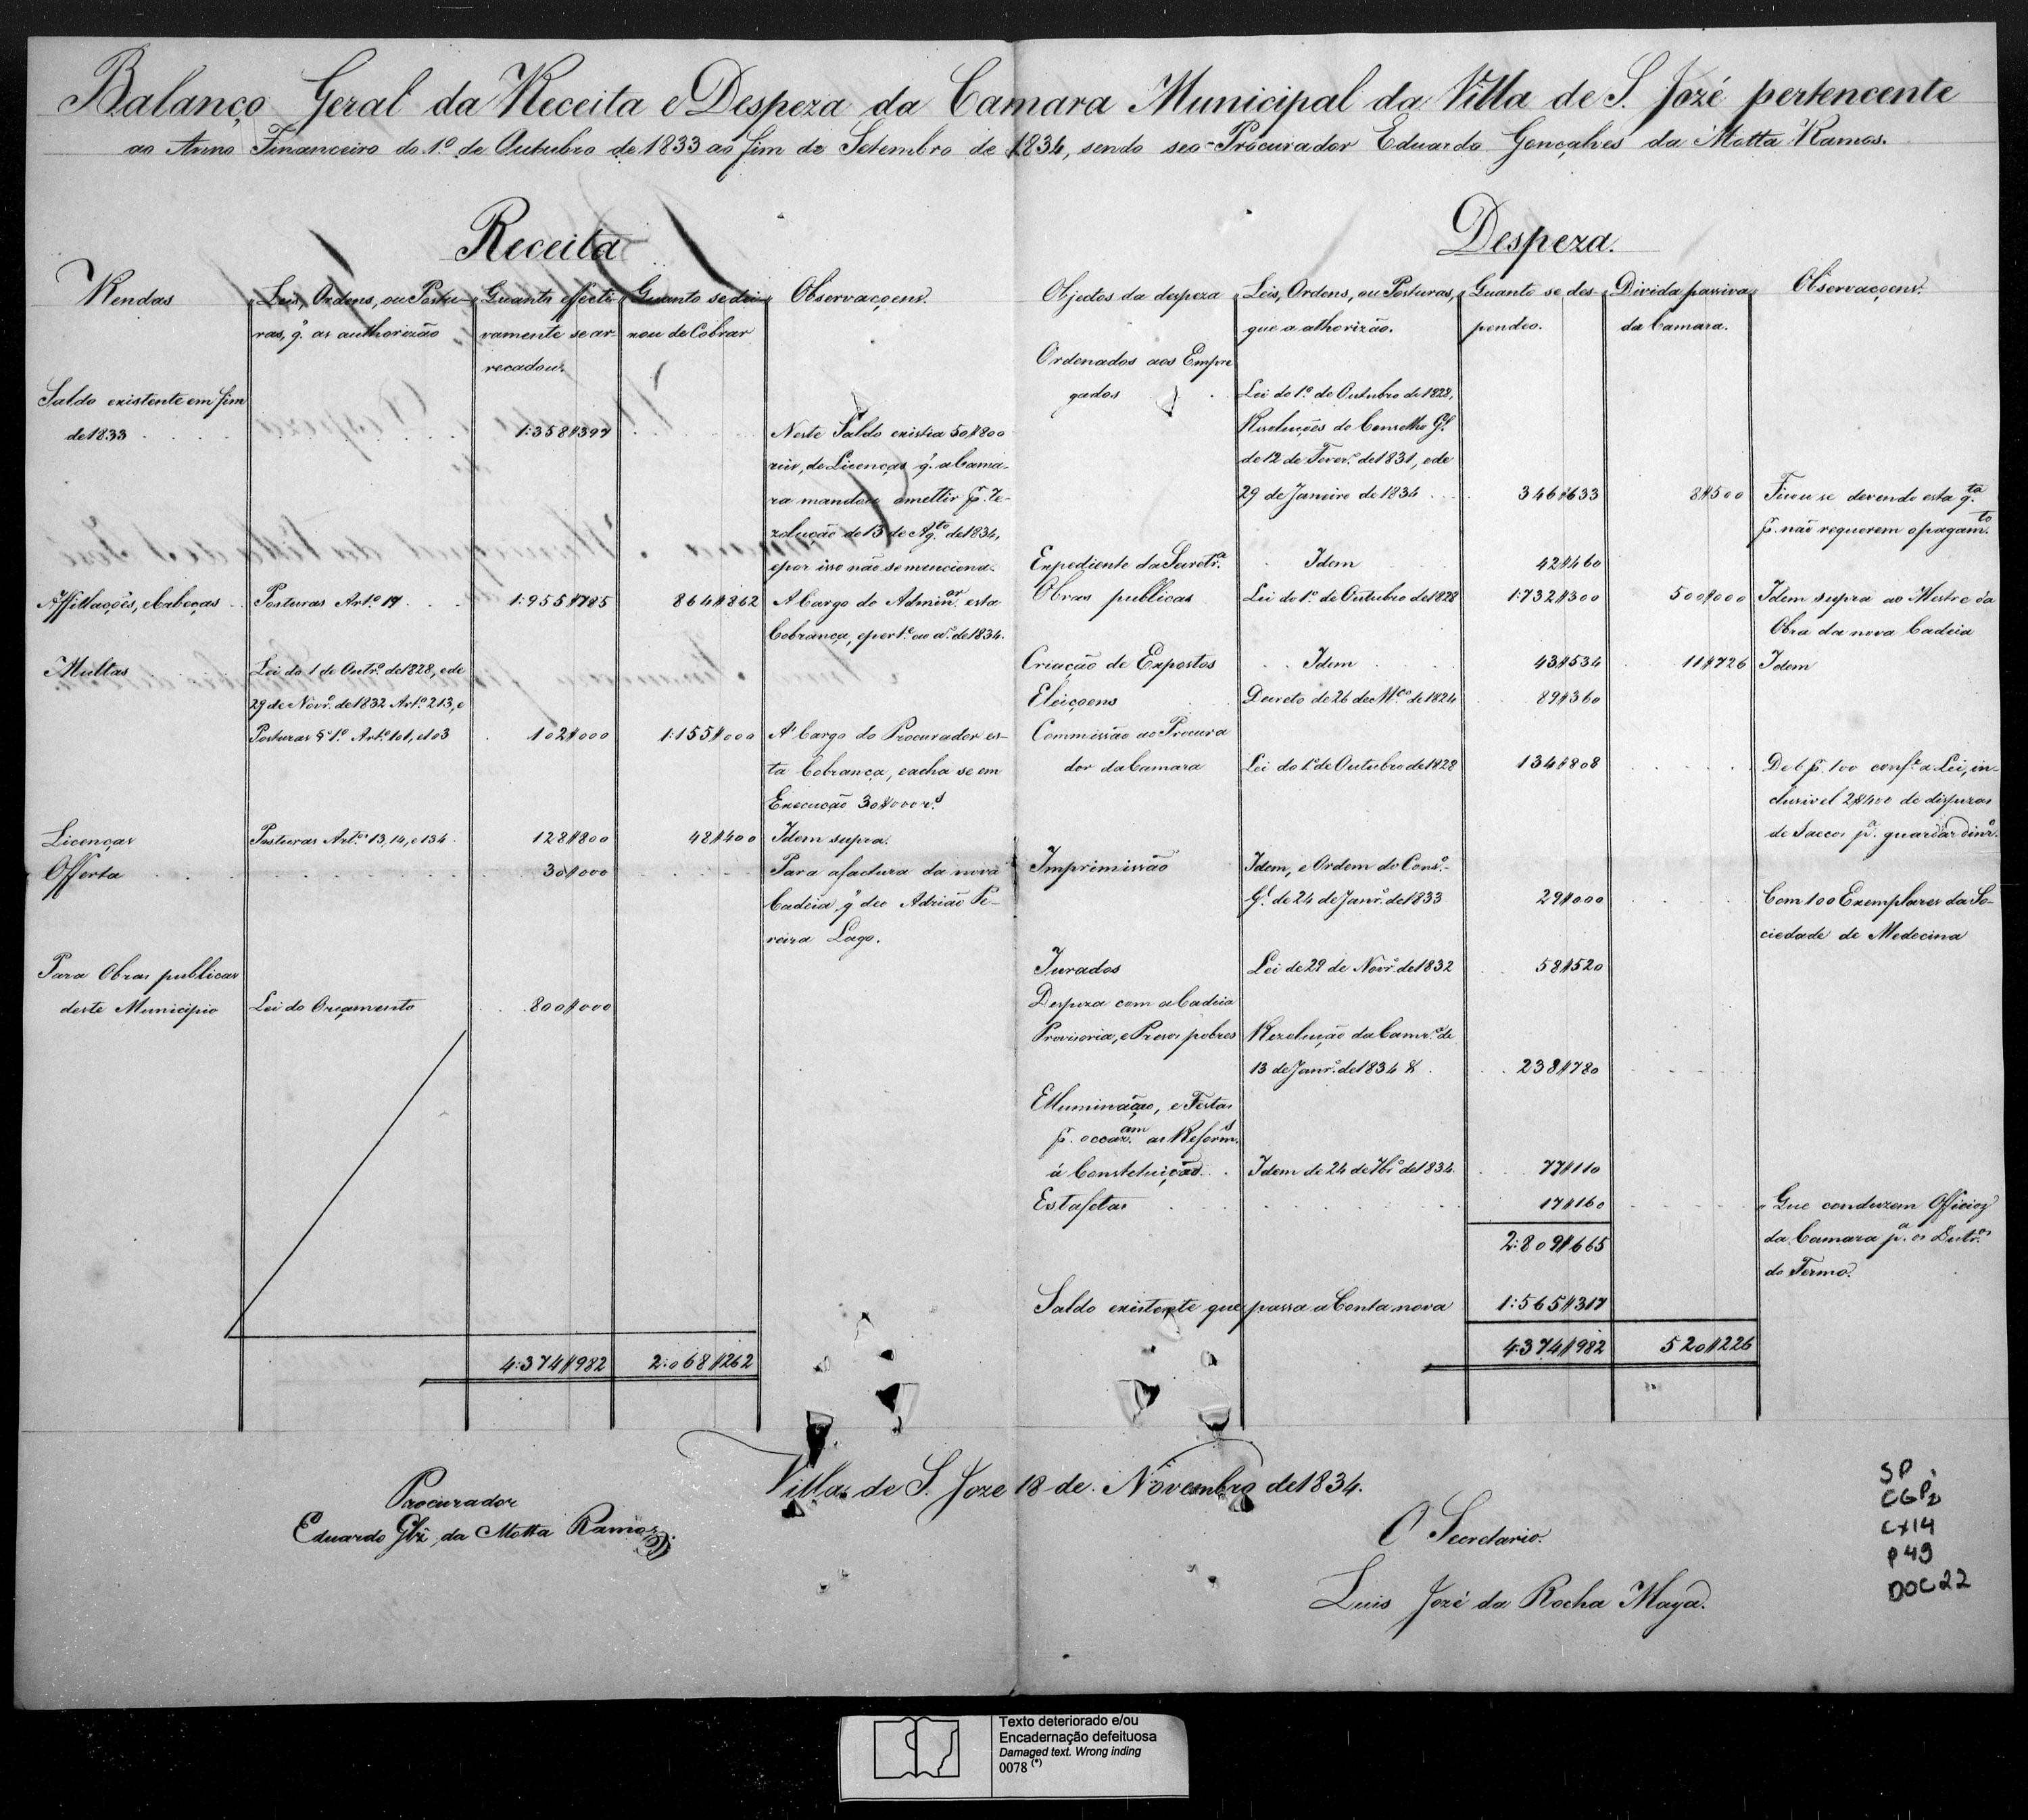 Balanço Geral da Receita e Despeza da Camara Municipal da Villa de S. Jozé pertencente
ao Anno Financeiro do 1.º de Outubro de 1833 ao fim de Setembro de 1834, sendo seo Procurador Eduardo Gonçalves da Motta Ramos.
Receita
Rendas
Leis, Ordens, ou Postu-
ras, q. as authorizão
Quanto effecti-
vamente se ar-
recadou.
Quanto se dei-
xou de Cobrar
Observaçoens.
Saldo existente em fim
de 1833 1:358$397
Neste Saldo existia 50$800
reis, de Licenças q. a Cama-
ra mandou omettir p. Re-
zolução de 13 de Ag.to de 1834,
e por isso não se menciona.
Affillações, e Cabeças Posturas Art.º 17 1:955$785 864$862 A Cargo do Admin.or esta
Cobrança, epert.e ao a.º de 1834.
Multas Lei do 1 de Outr.º de 1828, e de
29 de Novr.º de 1832 Art.º 213, e
Posturas § 1.º Art.º 101, e 103 102$000 1:155$000 A' Cargo do Procurador es-
ta Cobrança, e acha se em
Execução 30$000 r.s
Licenças Posturas Art.os 13, 14, e 134 128$800 48$400 Idem supra.
Offerta 30$000 Para a factura da nova
Cadeia q. deo Adrião Pe-
reira Lago.
Para Obras publicas
deste Municipio Lei do Orçamento 800$000
4:374$982 2:068$262
Despeza.
Objectos da despeza
Leis, Ordens, ou Posturas,
que a athorizão.
Quanto se des-
pendeo.
Divida passiva
da Camara.
Observaçoens.
Ordenados aos Empre
gados Lei do 1.º de Outubro de 1828,
Rezoluções do Conselho G.l
de 12 de Fever.º de 1831, e de
29 de Janeiro de 1834 346$633 8$500 Ficou se devendo esta q.ta
p. não requerem o pagam.to
Expediente da Secretr.ª Idem 42$460
Obras publicas Lei do 1.º de Outubro de 1828 1:732$300 500$000 Idem supra ao Mestre da
Obra da nova Cadeia
Criação de Expostos Idem 43$534 11$726 Idem
Eleiçoens Decreto de 26 de M.ço de 1824 89$360
Commissão ao Procura
dor da Camara Lei do 1.º de Outubro de 1828 134$808 De 6 p. 100 conf.e a Lei, in-
clusivel 2$400 de dispezas
de Saccos p.ª guardar dinr.º
Imprimissão Idem, e Ordem do Cons.º
G.l de 24 de Janr.º de 1833 29$000 Com 100 Exemplares da So-
ciedade de Medecina
Jurados Lei de 29 de Novr.º de 1832 58$520
Despeza com a Cadeia
Provisoria, e Prezos pobres Rezolução da Camr.ª de
13 de Janr.º de 1834 & 238$780
Elluminação, e Festas
p. occaz.am as Reform.s
á Constetuição Idem de 24 de 7br.º de 1834 77$110
Estafetas 17$160 Que conduzem Officios
da Camara p.ª os Distr.os
do Termo.
2:809$665
Saldo existente que passa a Conta nova 1:565$317
4:374$982 520$226
Villa de S. Joze 18 de Novembro de 1834.
Procurador
Eduardo Glz da Motta Ramos
O Secretario.
Luis Jozé da Rocha Maya.
SP
CGP2
CX14
P49
DOC22
Texto deteriorado e/ou
Encadernação defeituosa
Damaged text. Wrong inding
0078 (*)